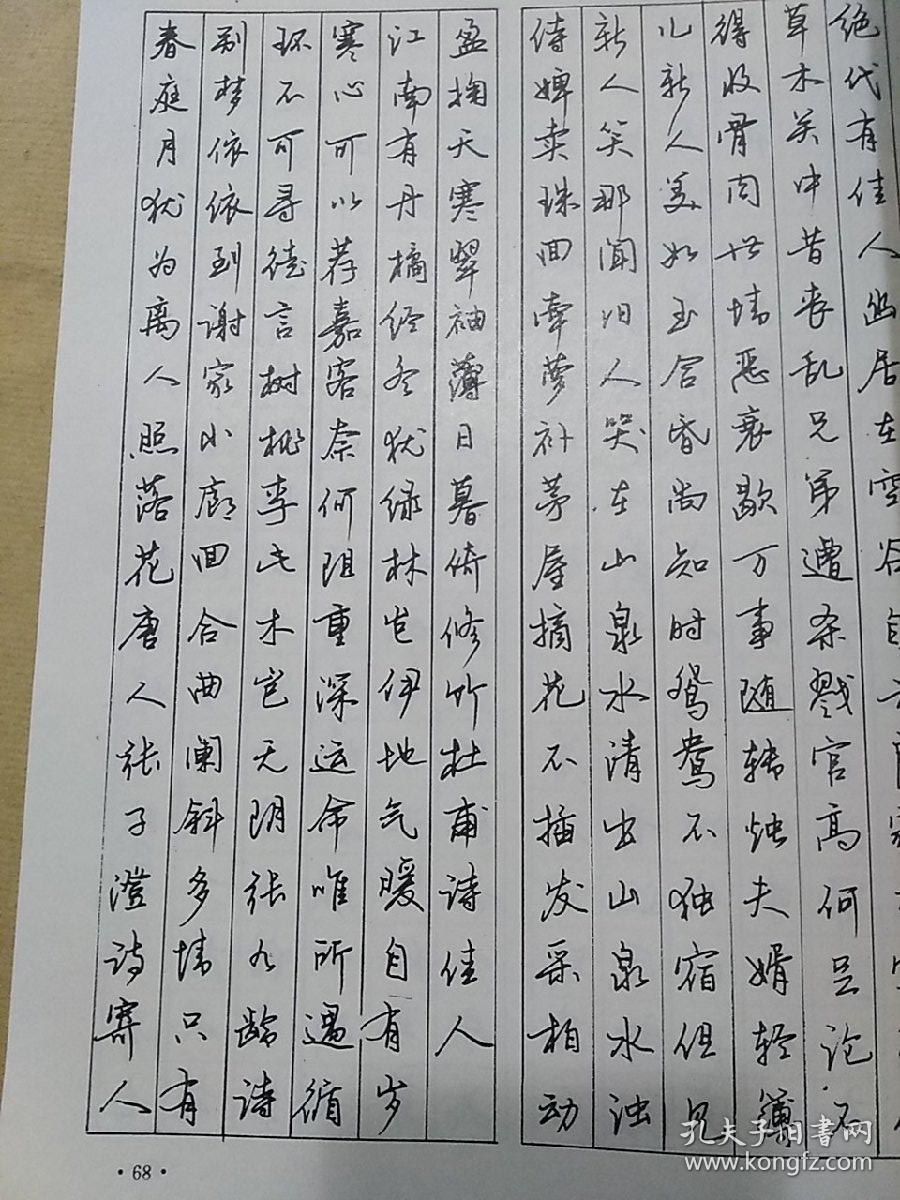 绝代有佳人幽居在空谷自
草木关中昔丧乱兄弟遭杀戮官高何足论不
得收骨肉世情恶衰歇万事随转烛夫婿轻薄
儿新人美如玉合昏尚知时鸳鸯不独宿但见
新人笑那闻旧人哭在山泉水清出山泉水浊
侍婢卖珠回牵萝补茅屋摘花不插发采柏动
盈掬天寒翠袖薄日暮倚修竹杜甫诗佳人
江南有丹橘经冬犹绿林岂伊地气暖自有岁
寒心可以荐嘉客奈何阻重深运命唯所遇循
环不可寻徒言树桃李此木岂无阴张九龄诗
别梦依依到谢家小廊回合曲阑斜多情只有
春庭月犹为离人照落花唐人张子澄诗寄人
·68·
孔夫子旧书网
www.kongfz.com